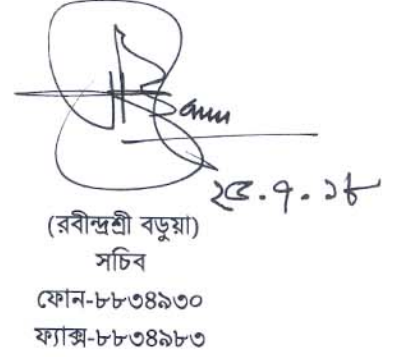 ২৫.৭.১৮
(রবীন্দ্রশ্রী বড়ুয়া)
সচিব
ফোন-৮৮৩৪৯৩০
ফ্যাক্স-৮৮৩৪৯৮৩